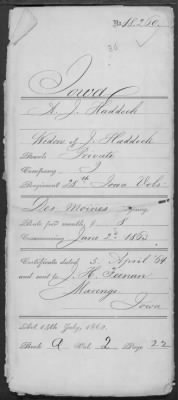 No. 18,260.
Iowa
A. J. Haddock
Widow of J. Haddock
Rank Private
Company I
Regiment 28th Iowa Vols
Des Moines Agency
Rate per month, $ 8
Commencing June 2d 1863
Certificate dated 5 April '64
and sent to J. H. Feenan
Marengo
Iowa
Act 14th July, 1862.
Book A Vol. 2 Page 22